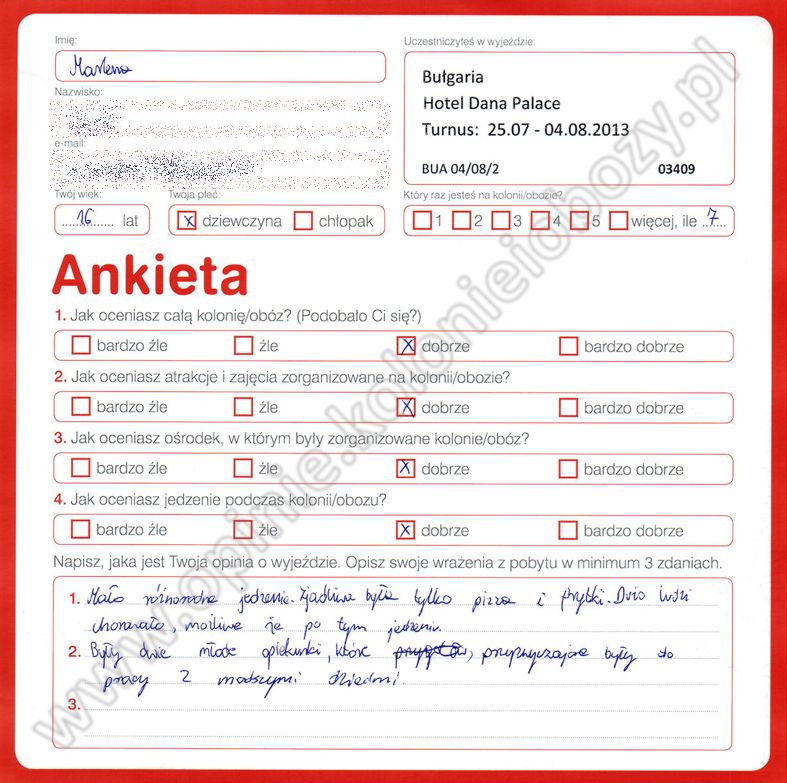 Imię:
Marlena
Nazwisko:
e-mail:
Twój wiek:
16 lat
Twoja płeć:
x dziewczyna chłopak
Uczestniczyłeś w wyjeździe:
Bułgaria
Hotel Dana Palace
Turnus: 25.07 - 04.08.2013
BUA 04/08/2 03409
Który raz jesteś na kolonii/obozie?
1 2 3 4 5 więcej, ile 7
Ankieta
1. Jak oceniasz całą kolonię/obóz? (Podobało Ci się?)
bardzo źle źle x dobrze bardzo dobrze
2. Jak oceniasz atrakcje i zajęcia zorganizowane na kolonii/obozie?
bardzo źle źle x dobrze bardzo dobrze
3. Jak oceniasz ośrodek, w którym były zorganizowane kolonie/obóz?
bardzo źle źle x dobrze bardzo dobrze
4. Jak oceniasz jedzenie podczas kolonii/obozu?
bardzo źle źle x dobrze bardzo dobrze
Napisz, jaka jest Twoja opinia o wyjeździe. Opisz swoje wrażenia z pobytu w minimum 3 zdaniach.
1. Mało różnorodne jedzenie. Zjadliwa była tylko pizza i frytki. Dużo ludzi
chorowało, możliwe że po tym jedzeniu.
2. Były dwie młode opiekunki, które przyzwyczajone były do
pracy z młodszymi dziećmi.
3.
www.opinie.kolonieiobozy.pl